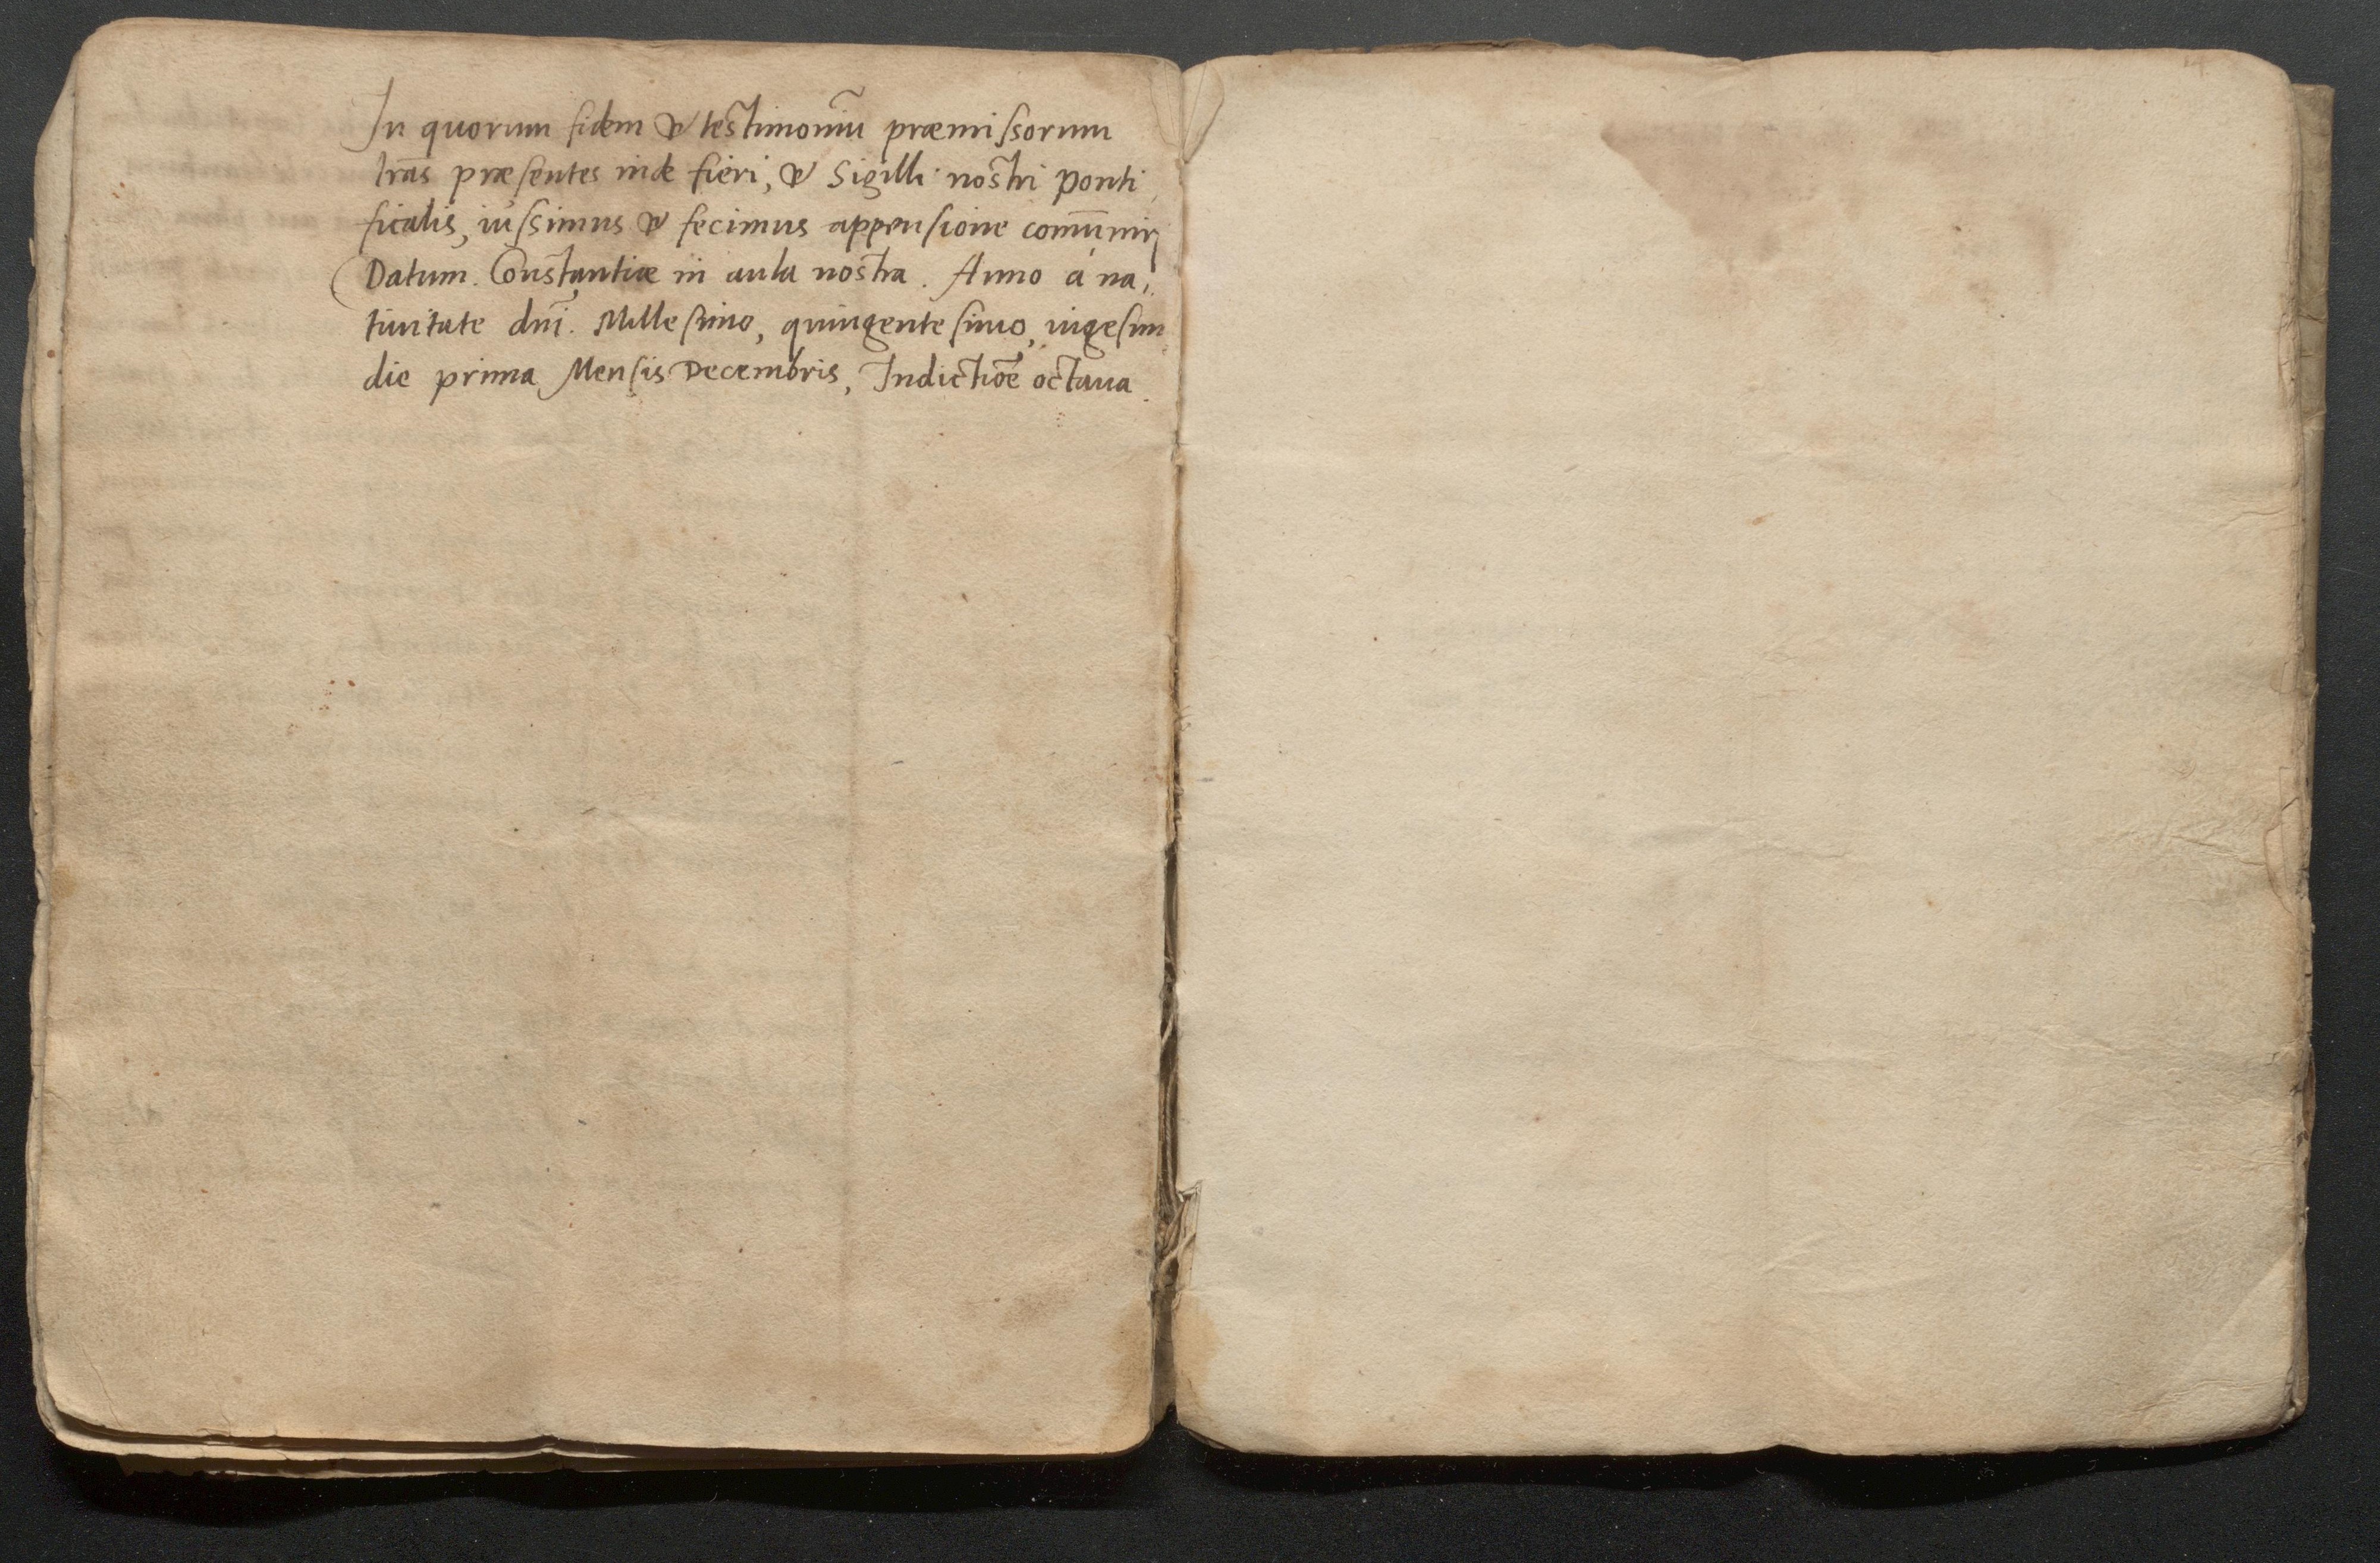 In quorum fidem & testimoniũ præmissorum
lrãs præsentes inde fieri, & Sigilli nostri ponti,
ficalis, iussimus & fecimus appensione com̃uniri
Datum. Constantiæ in aula nostra. Anno á na,
tiuitate dñi. Millesimo, quingentesimo, uigesimo
die prima Mensis Decembris, Indictiõe octaua.